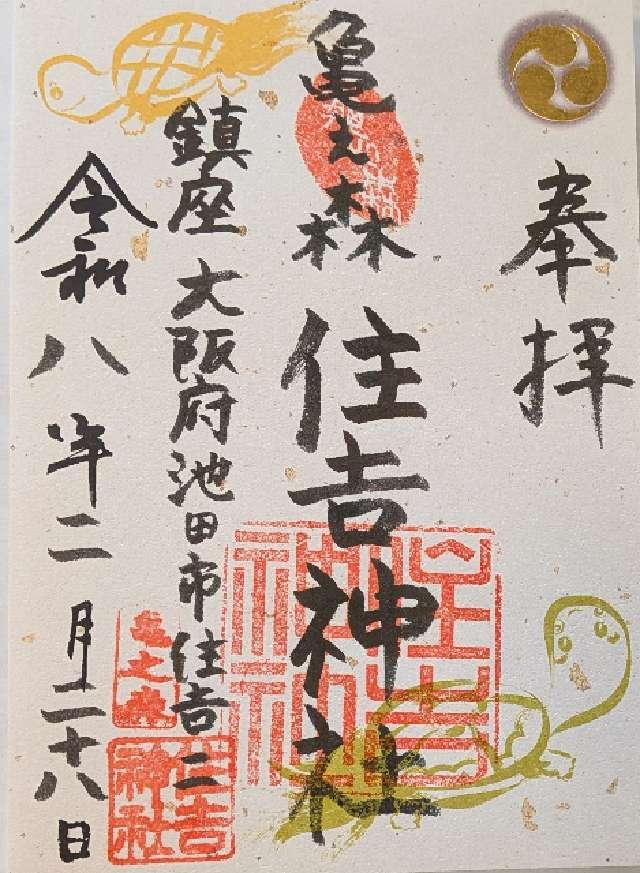 奉拝
亀之森
住吉神社
鎮座 大阪府池田市住吉二
令和八年二月二十八日
亀之森
住吉神社
住吉神社